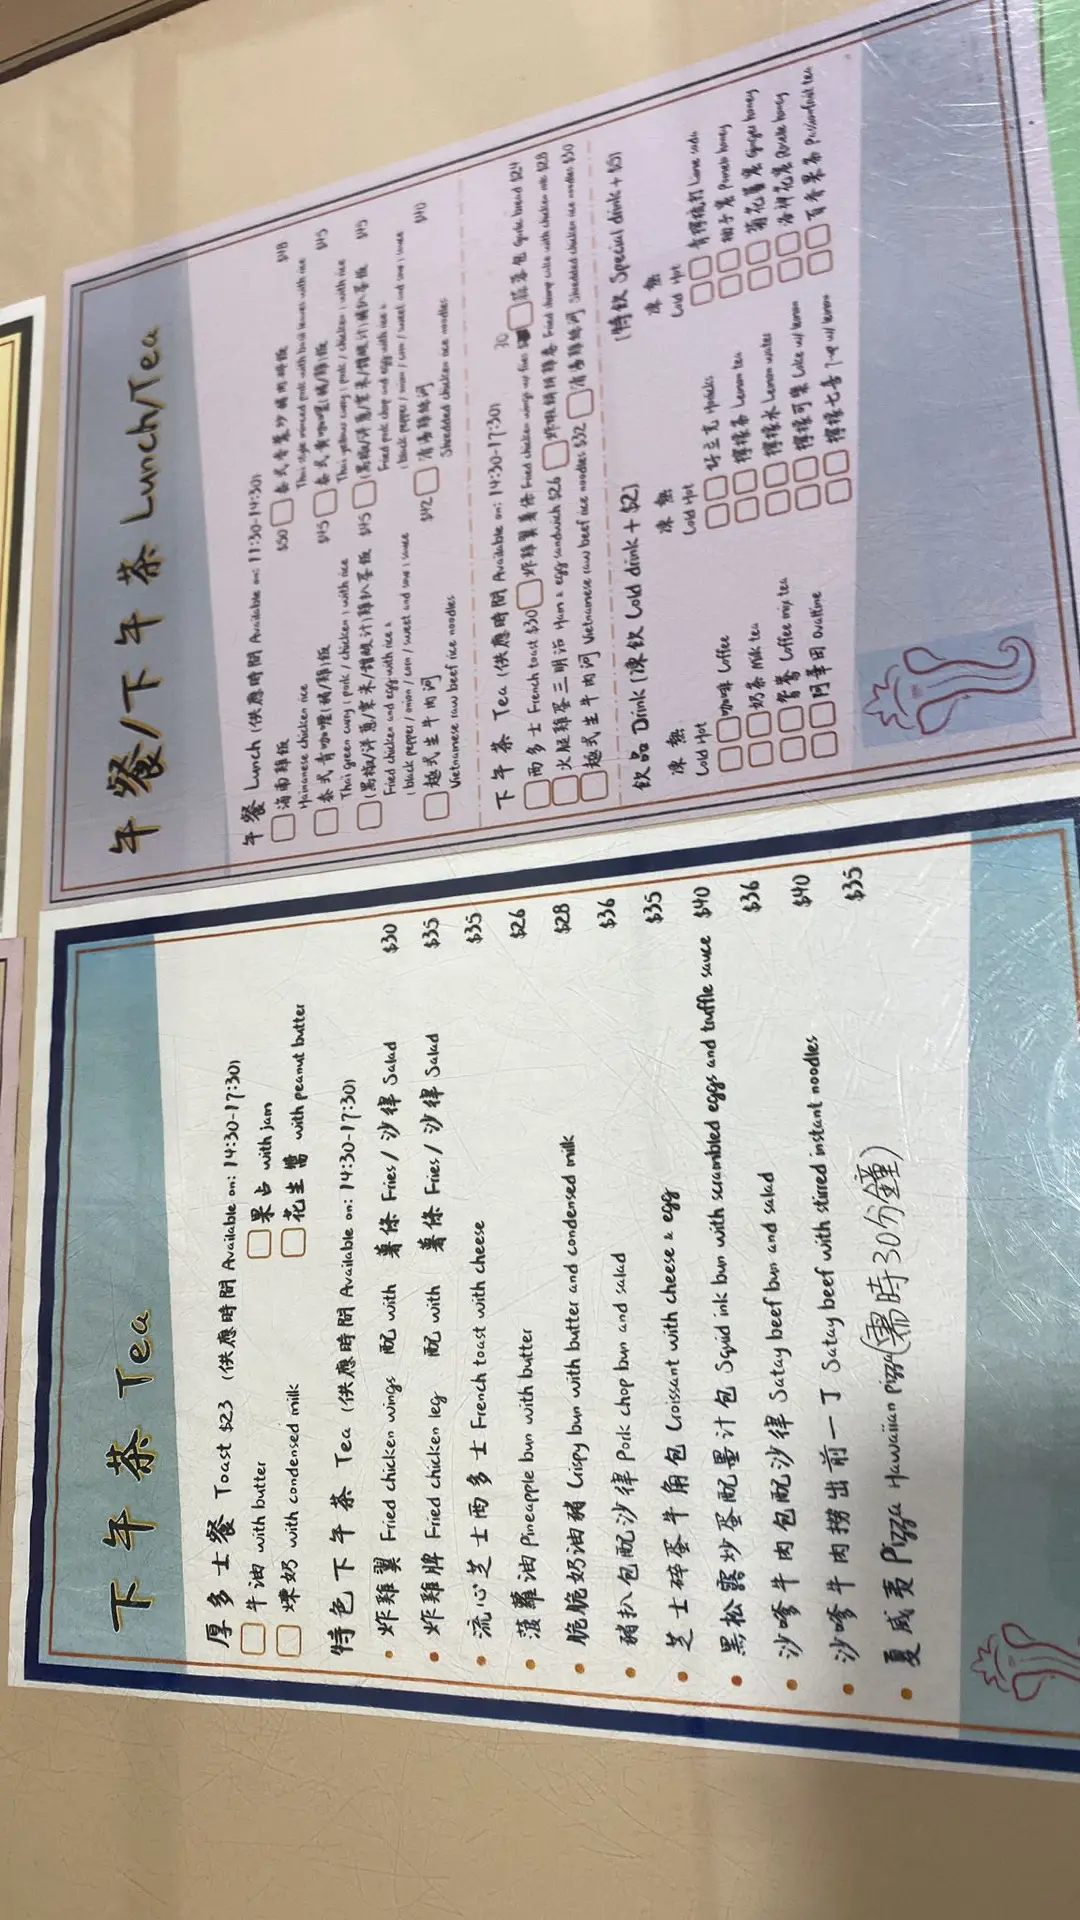 下午茶 Tea
厚多士餐 Toast $23 (供應時間 Available on: 14:30-17:30)
牛油 with butter 果占 with jam
煉奶 with condensed milk 花生醬 with peanut butter
特色下午茶 Tea (供應時間 Available on: 14:30-17:30)
• 炸雞翼 Fried chicken wings 配 with 薯條 Fries / 沙律 Salad $30
• 炸雞脾 Fried chicken leg 配 with 薯條 Fries / 沙律 Salad $35
• 流心芝士西多士 French toast with cheese $35
• 菠蘿油 Pineapple bun with butter $26
• 脆脆奶油豬 Crispy bun with butter and condensed milk $28
• 豬扒包配沙律 Pork chop bun and salad $36
• 芝士碎蛋牛角包 Croissant with cheese & egg $35
• 黑松露炒蛋配墨汁包 Squid ink bun with scrambled eggs and truffle sauce $40
• 沙嗲牛肉包配沙律 Satay beef bun and salad $36
• 沙嗲牛肉撈出前一丁 Satay beef with stirred instant noodles $40
• 夏威夷Pizza Hawaiian pizza (需時30分鐘) $35
午餐/下午茶 Lunch/Tea
午餐 Lunch (供應時間 Available on: 11:30-14:30)
海南雞飯 $50 泰式香葉炒豬肉碎飯 $48
Hainanese chicken rice Thai style minced pork with basil leaves with rice
泰式青咖喱(豬/雞)飯 $45 泰式黃咖喱(豬/雞)飯 $45
Thai green curry (pork / chicken) with rice Thai yellow curry (pork / chicken) with rice
(黑椒/洋蔥/粟米/甜酸汁)雞扒蛋飯 $45 (黑椒/洋蔥/粟米/甜酸汁)豬扒蛋飯 $45
Fried chicken and egg with rice & Fried pork chop and egg with rice &
(black pepper / onion / corn / sweet and sour) sauce (black pepper / onion / corn / sweet and sour) sauce
越式生牛肉河 $42 清湯雞絲河 $40
Vietnamese raw beef rice noodles Shredded chicken rice noodles
下午茶 Tea (供應時間 Available on: 14:30-17:30)
西多士 French toast $30 炸雞翼薯條 Fried chicken wings w/ fries 30 蒜蓉包 Garlic bread $24
火腿雞蛋三明治 Ham & egg sandwich $26 Fried shrimp cake with chicken $28
越式生牛肉河 Vietnamese raw beef rice noodles $32 清湯雞絲河 Shredded chicken rice noodles $30
飲品 Drink (凍飲 Cold drink + $2) (特飲 Special drink + $5)
凍 熱 凍 熱 凍 熱
Cold Hot Cold Hot Cold Hot
咖啡 Coffee 好立克 Horlicks 青檸梳打 Lime soda
奶茶 Milk tea 檸檬茶 Lemon tea 柚子蜜 Pomelo honey
鴛鴦 Coffee mix tea 檸檬水 Lemon water Ginger honey
阿華田 Ovaltine 檸檬可樂 Coke w/ lemon 洛神花蜜 Roselle honey
檸檬七喜 7-up w/ lemon 百香果茶 Passionfruit tea